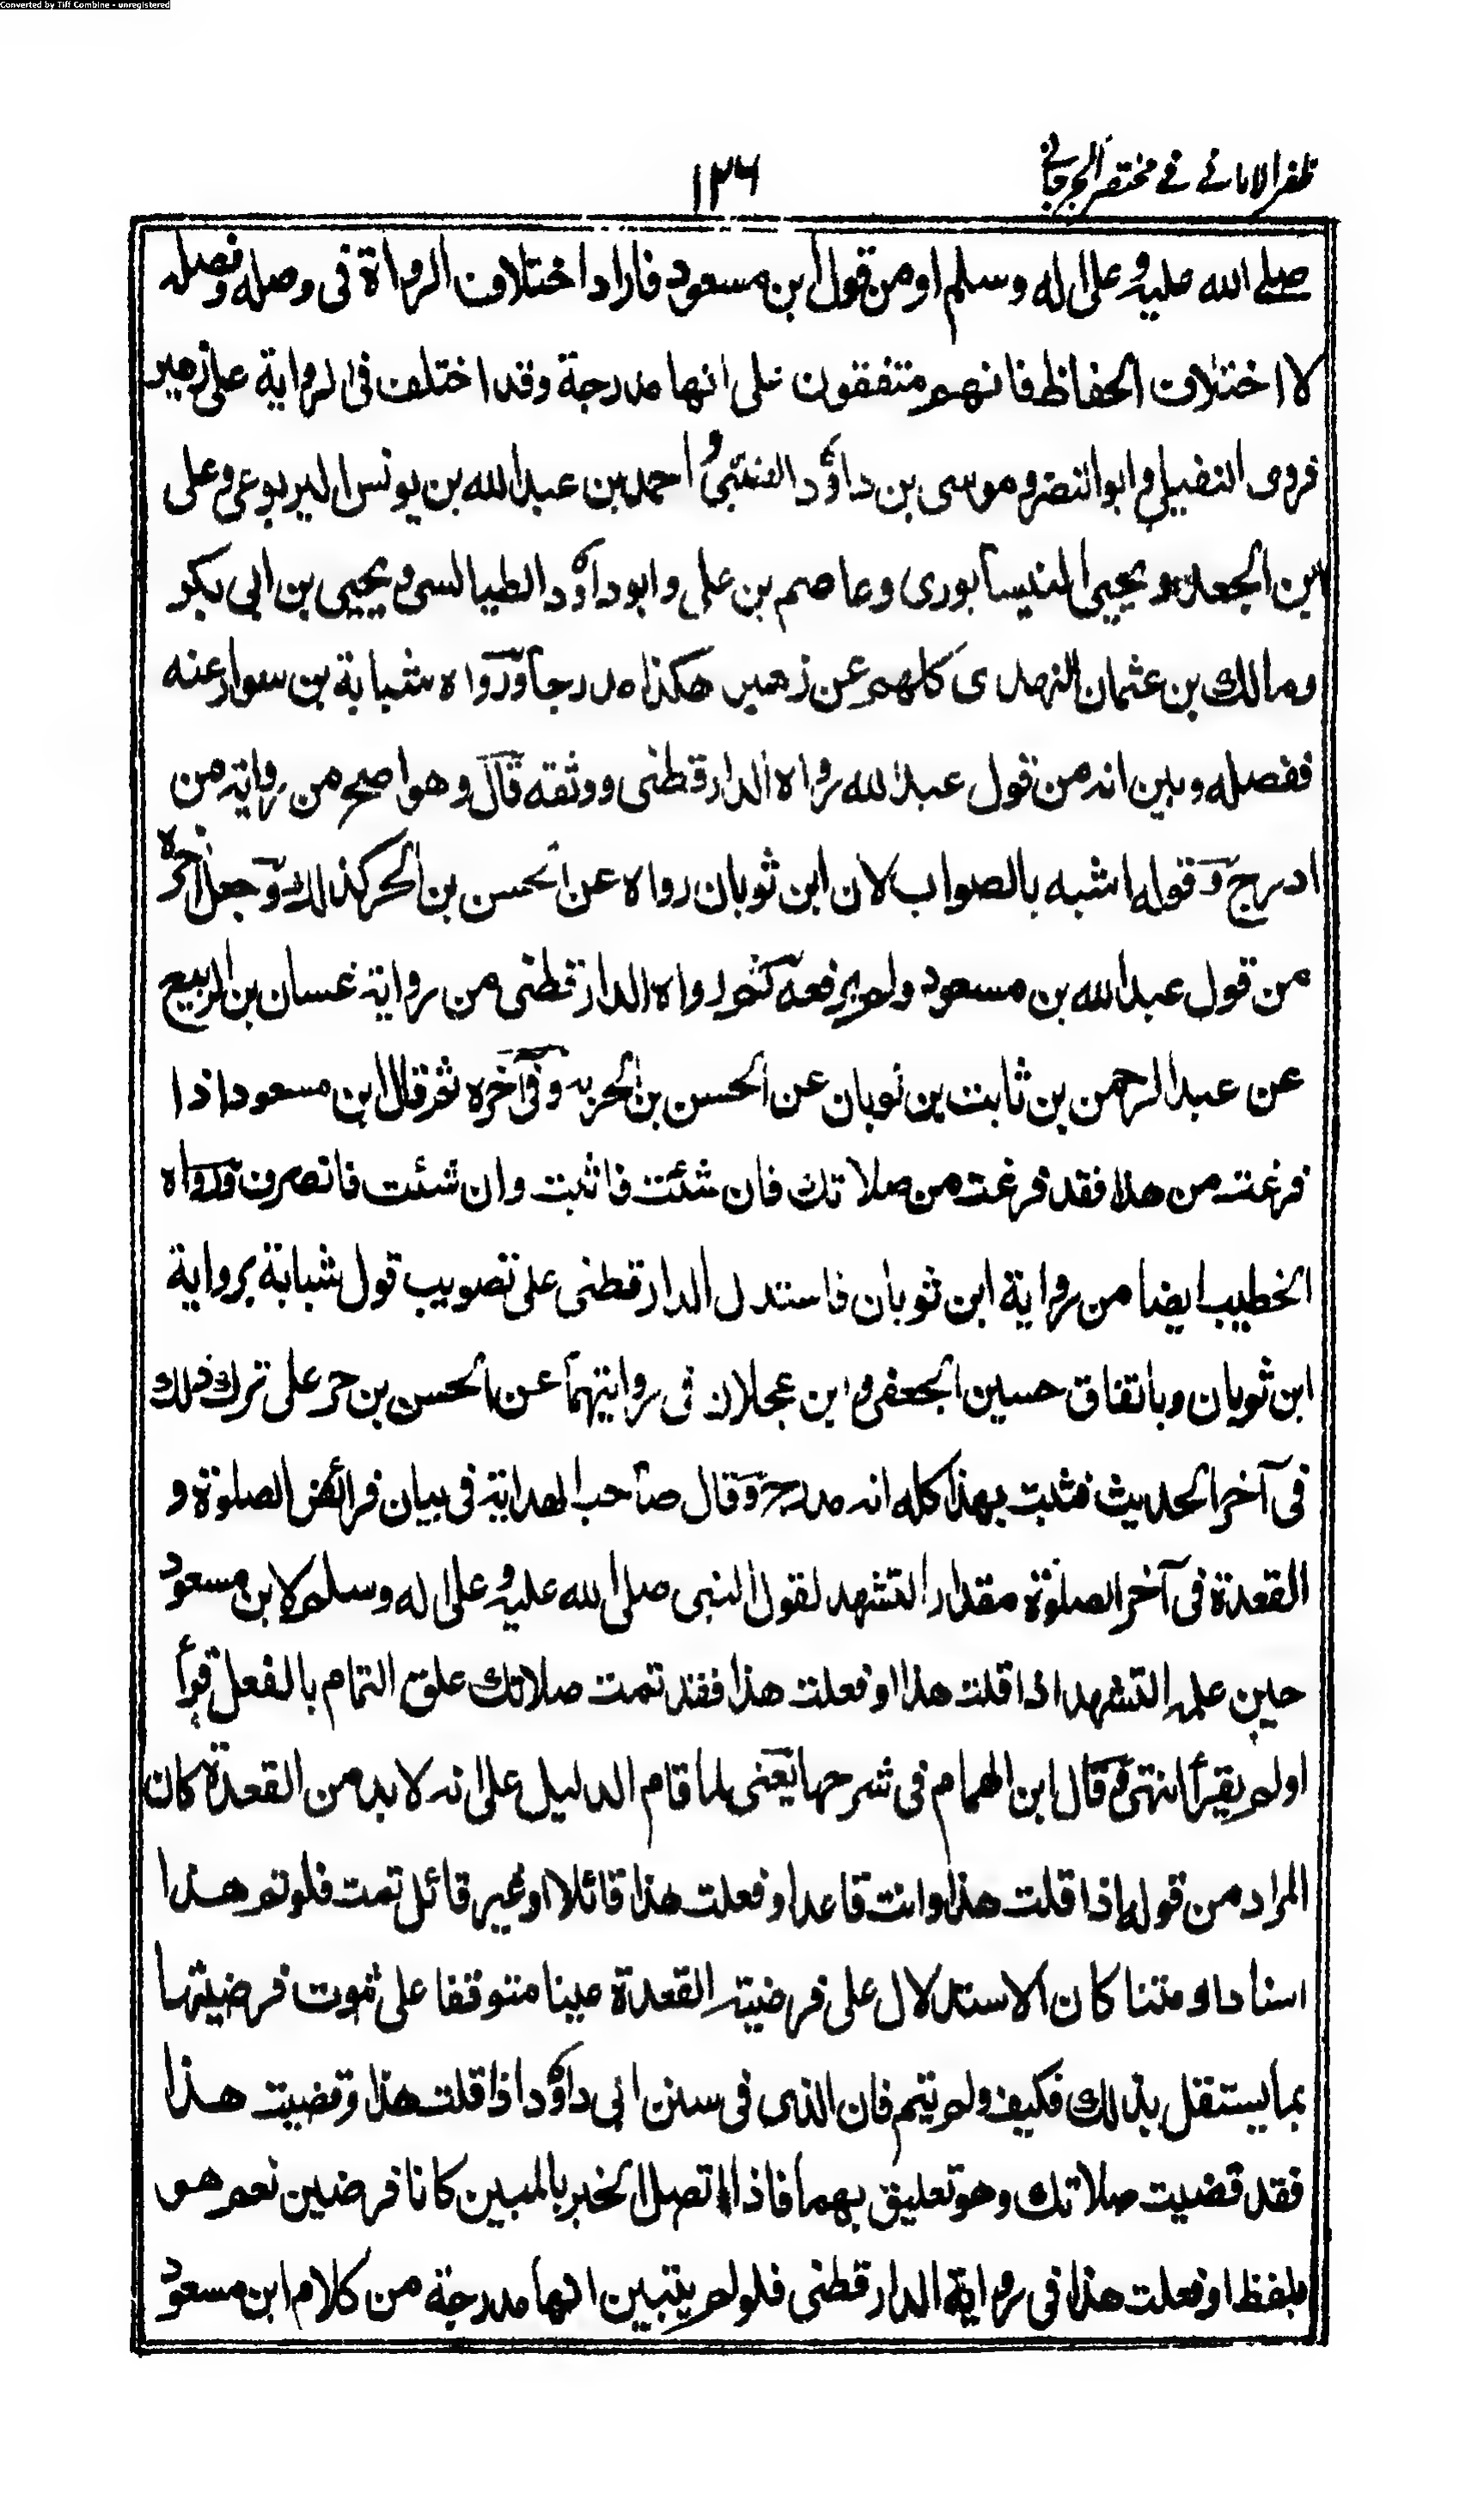 Converted by Tiff Combine - unregistered
ظفر الامانے فے مختصر الجرجانے
۱۳۶
صلے الله عليه وعلى اله وسلم او من قول ابن مسعود فاراد اختلاف الرواة فى وصله وفصله
لا اختلاف الحفاظ فانهم متفقون على انها مدرجة وقد اختلف فى الرواية على زهير
فروى النفيلي وابو النضر وموسى بن داؤد الضبي واحمد بن عبد الله بن يونس اليربوعي وعلى
بن الجعد ويحيى النيسابورى وعاصم بن على وابو داؤد الطيالسى ويحيى بن ابى بكر
ومالك بن عثمان النهدى كلهم عن زهير هكذا مدرجا ورواه شبابة بن سوار عنه
ففصله وبين انه من قول عبد الله رواه الدارقطنى ووثقه قال وهو اصح من رواية من
ادرج وقوله اشبه بالصواب لان ابن ثوبان رواه عن الحسن بن الحر كذلك وجعل آخره
من قول عبد الله بن مسعود ولم يرفعه ثم رواه الدارقطنى من رواية غسان بن الربيع
عن عبد الرحمن بن ثابت بن ثوبان عن الحسن بن الحر به وفى آخره ثم قال ابن مسعود اذا
فرغت من هذا فقد فرغت من صلاتك فان شئت فاثبت وان شئت فانصرف ورواه
الخطيب ايضا من رواية ابن ثوبان فاستدل الدارقطنى على تصويب قول شبابة برواية
ابن ثوبان وباتفاق حسين الجعفي وابن عجلان فى روايتهما عن الحسن بن حر على ترك ذلك
فى آخر الحديث فثبت بهذا كله انه مدرج وقال صاحب الهداية فى بيان فرائض الصلوة و
القعدة فى آخر الصلوة مقدار التشهد لقول النبى صلى الله عليه وعلى اله وسلم لابن مسعود
حين علمه التشهد اذا قلت هذا او فعلت هذا فقد تمت صلاتك علق التمام بالفعل قرأ
اولم يقرأ انتهى وقال ابن الهمام فى شرحها يعنى لما قام الدليل على انه لا بد من القعدة كان
المراد من قوله اذا قلت هذا وانت قاعد او فعلت هذا قائلا او غير قائل تمت فلو تم هذا
اسنادا ومتنا كان الاستدلال على فرضية القعدة مبينا متوقفا على ثبوت فرضيتها
بما يستقل بذلك فكيف ولم يتم فان الذى فى سنن ابى داؤد اذا قلت هذا وقضيت هذا
فقد قضيت صلاتك وهو تعليق بهما فاذا اتصل الخبر بالمبين كانا فرضين نعم هو
بلفظ او فعلت هذا فى رواية الدارقطنى فلو لم يتبين انها مدرجة من كلام ابن مسعود